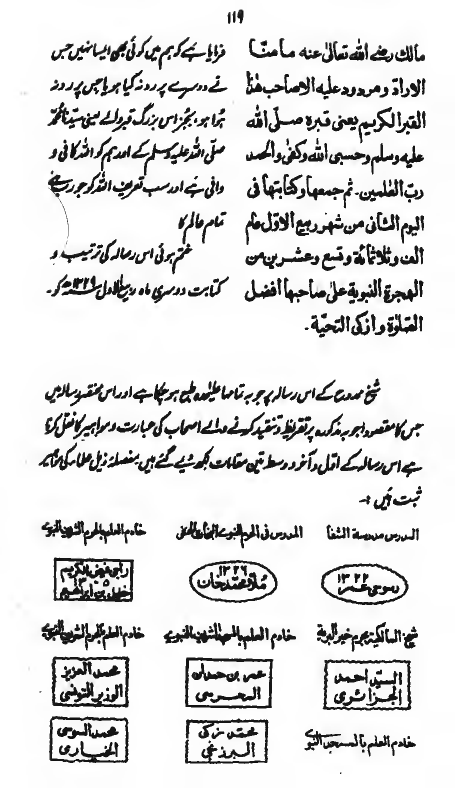 ۱۱۹
مالك رضے الله تعالیٰ عنه مامنّا
الاراد ومردود علیه الاصاحب هٰذا
القبر الکریم یعنی قبره صلّی الله
علیه وسلم وحسبی الله وکفٰی والحمد
ربّ العٰلمین. ثم جمعها وکتابتها فی
الیوم الثانی من شهر ربیع الاول عام
الف وثلاثمائة وتسع وعشرین من
الهجرة النبویة علیٰ صاحبها افضل
الصلوٰة وازکی التحیّة.
فرمایا ہے کہ ہم میں کوئی بھی ایسا نہیں جس
نے دوسرے پر رد نہ کیا ہو یا جس پر رد نہ
ہوا ہو، بجز اس بزرگ قبر والے یعنی سیدنا محمد
صلی اللہ علیہ وسلم کے اور ہم کو اللہ کافی و
وافی ہے اور سب تعریف اللہ کو جو رب ہے
تمام عالم کا
ختم ہوئی اس رسالہ کی ترتیب و
کتابت دوسری ماہ ربیع الاول ۱۳۲۹ھ کو۔
شیخ ممدوح کے اس رسالہ پر جو بہ تمامہا علیٰحدہ طبع ہو چکا ہے اور اس مختصر رسالہ میں
جس کا مقصود اجوبہ مذکورہ پر تقریظ و تنقید کرنے والے اصحاب کی عبارت و مواہیر کا نقل کرنا
ہے اس رسالہ کے اول و آخر و وسط تین مقامات لکھ دیے گئے ہیں بمفصلہ ذیل علماء کی مواہیر
ثبت ہیں :۔
المدرس مدرسة الشفا
المدرس فی الحرم النبوے
خادم العلم بالحرم الشریف النبوے
رسوحی عمر ۱۳۲۲
ملا محمد خان ۱۳۲۶
راجی فیض الکریم
خلیل بن ابراهیم
شیخ المالکیة بحرم خیر البریة
خادم العلم بالمسجد الشریف النبوے
خادم العلم بالحرم الشریف النبوے
السیّد احمد
الجزائری
عمر بن حمدان
المحرسی
محمد العزیز
الوزیر التونسی
خادم العلم بالمسجد النبوے
محمد زکی
البرزنجی
محمد السوسی
الخیاری